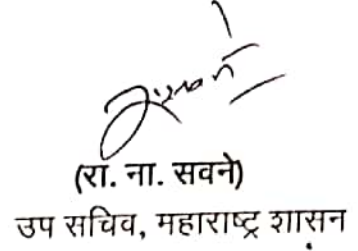 (रा. ना. सवने)
उप सचिव, महाराष्ट्र शासन